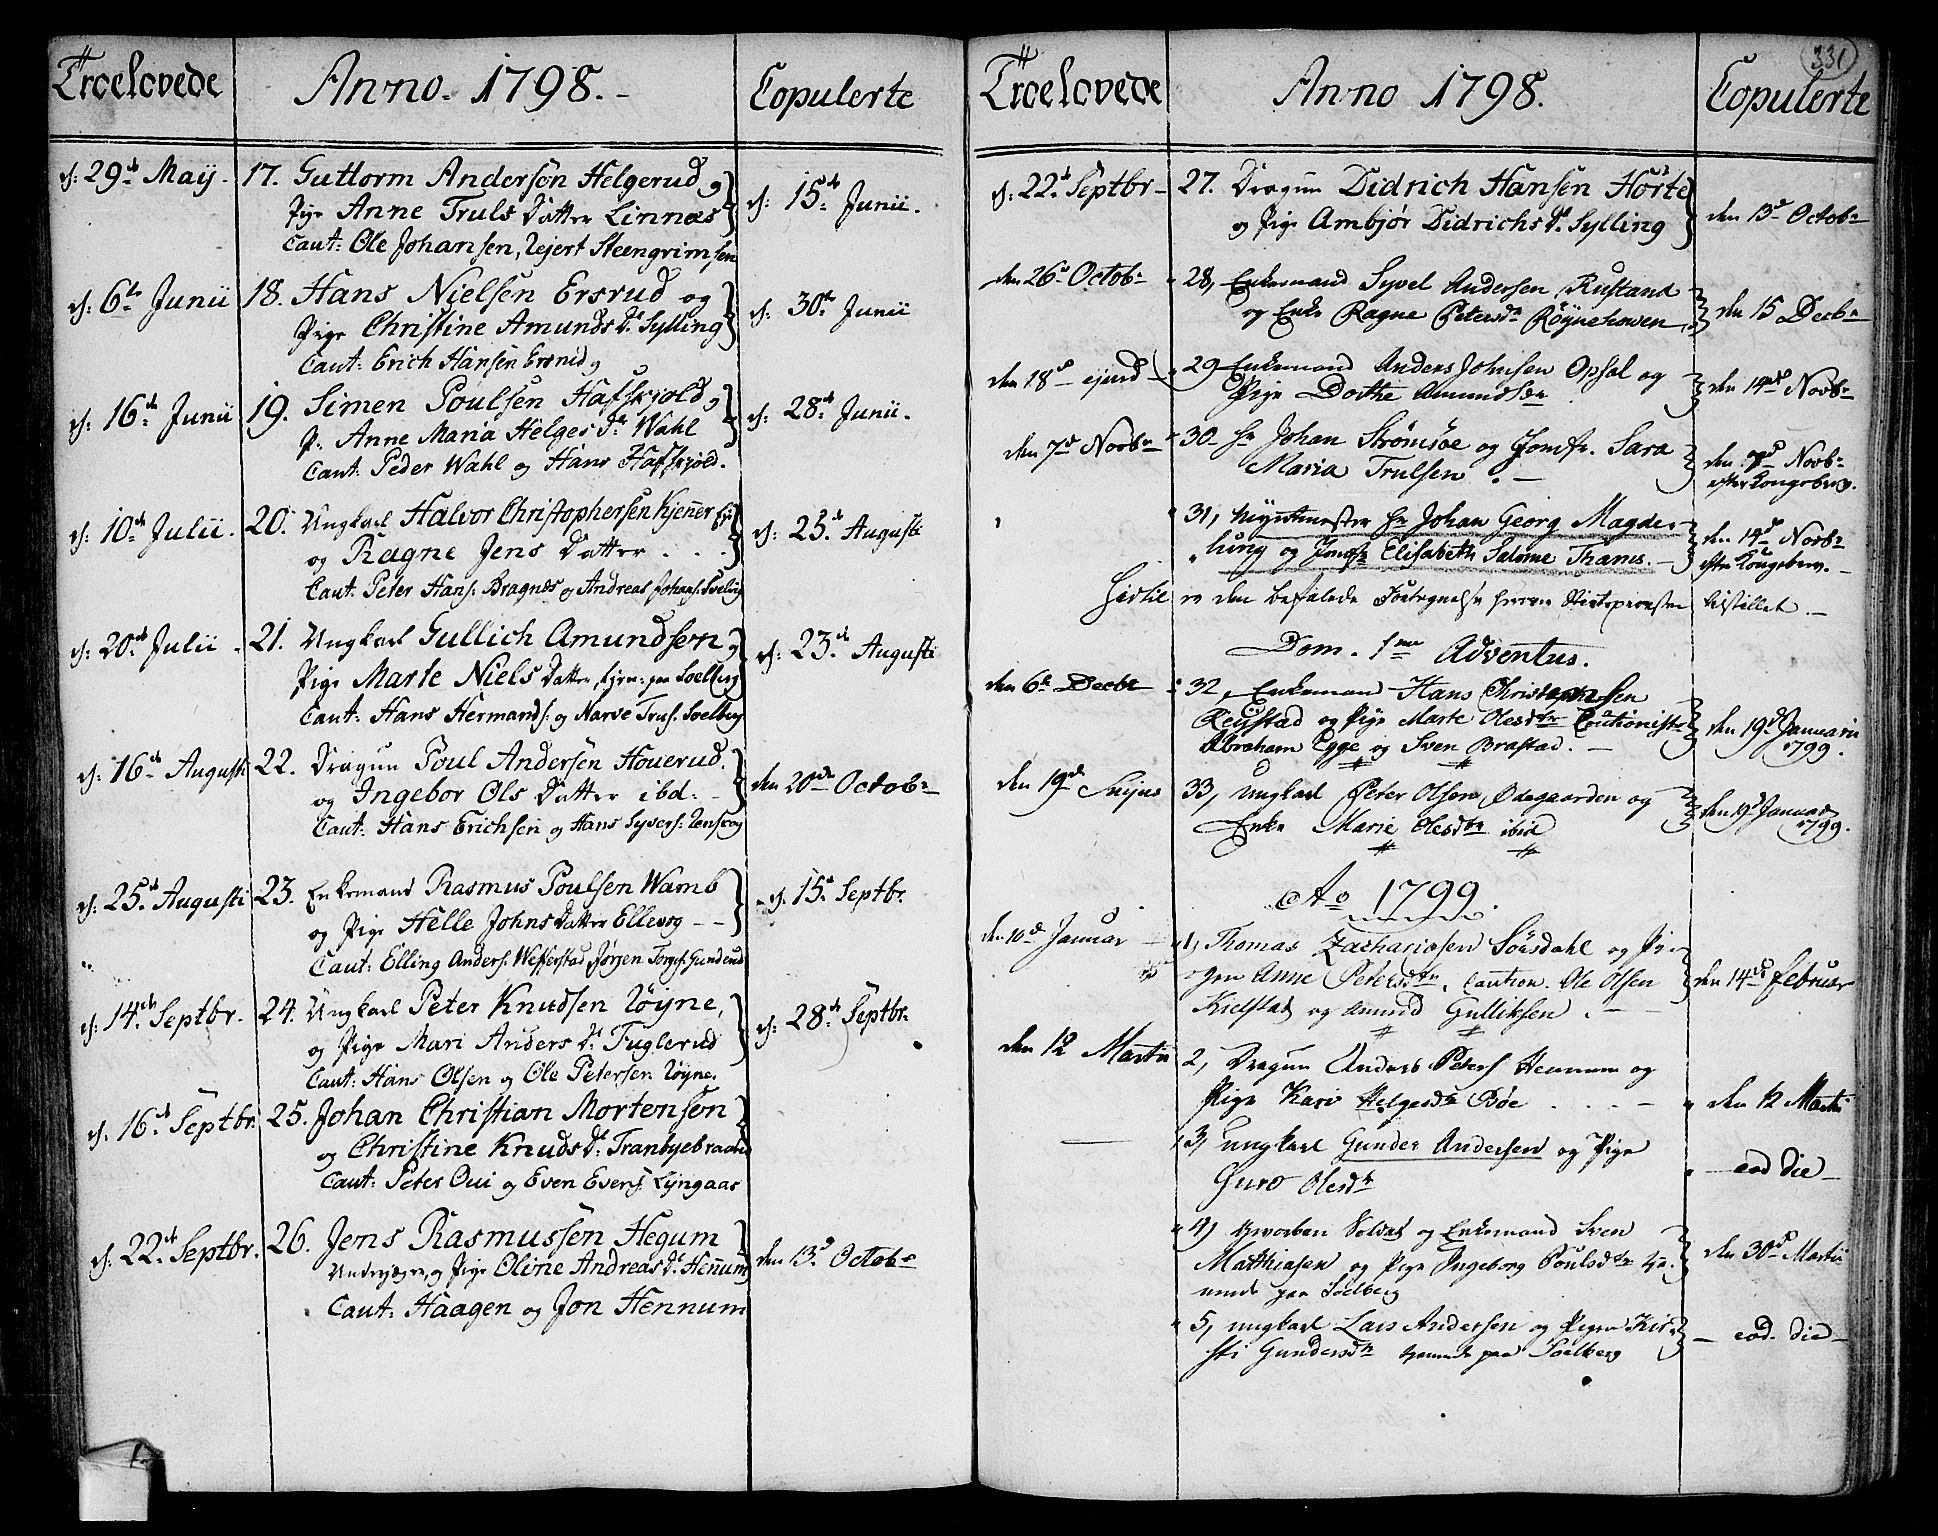 Troelovede
Anno. 1798.
Copulerte
d: 29de Maij.
17. Guttorm Andersøn Helgerud og
Pige Anne Truls Datter Linnæs
Caut: Ole Johansen, Steengrimsen
d: 15de Junii.
d: 6te Junii
18. Hans Nielsen Ersrud og
Pige Christine Amunds Dr Sylling
Caut: Erich Hansen Ersrud
d: 30te Junii
d: 16de Junii
19. Simen Poulsen Hafskjold og
P. Anne Maria Helges Dr Wahl
Caut: Peder Wahl og Hans Hafskjold.
d: 28de Junii.
d: 10de Julii.
20. Ungkarl Halvor Christophersen Kjenner
og Ragne Jens Datter . . .
Caut: Peter Hans: Bragnæs og Andreas Johans: Sveling
d: 25de Augusti
d: 20de Julii
21. Ungkarl Gullich Amundsen og
Pige Marte Niels Datter, tjen: paa Soelberg
Caut: Hans Hermands: og Narve Truls: Soelberg
d: 23de Augusti
d: 16de Augusti
22. Dragun Poul Andersen Houerud.
og Ingebor Ols Datter ibd:
Caut: Hans Erichsen og Hans Syvers:
den 20de Octobr
d: 25de Augusti
23. Enkemand Rasmus Poulsen Wamb
og Pige Helle Johns Datter Ellevog
Caut: Elling Anders: Wefferstad Jørgen Torges: Gunderud
d: 15de Septbr.
d: 14de Septbr.
24. Ungkarl Peter Knudsen Røyne,
og Pige Mari Anders Dr Fuglerud
Caut: Hans Olsen og Ole Petersen Røyne.
d: 28de Septbr.
d. 16de Septbr.
25. Johan Christian Mortensen
og Christine Knuds Dr Tranbyebraaten
Caut: Peter Oui og Even Evens: Lyngaas
d: 22de Septbr.
26. Jens Rasmussen Hegum
og Pige Oline Andreas Dr Hennum
Caut: Haagen og Jon Hennum
den 13de Octobr
331
Troelovede
Anno 1798.
Copulerte
d: 22de Septbr
27. Dragun Didrich Hansen Hørte
og Pige Ambjør Didrichs Dr Sylling
den 13de Octobr
den 26de Octobr
28, Enkemand Syvel Andersen Rustand
og Enke Ragne Petersdr Røynehowen
den 15 Decbr
den 18de ejusd
29 Enkemand Anders Johnsen Opsal og
Pige Dorthe Amundsdr
den 14de Novbr
den 7de Novbr
30. Hr Johan Strømsøe og Jomfr. Sara
Maria Trulsen.
den 7de Novbr
efter Kongebrev.
31, Myntmester Hr Johan Georg Magder-
lung og Jmfr Elisabeth Salome Thams.
den 14de Novbr
efter Kongebrev.
Hertil er den befalede Fortegnelse Herren Stiftsprovsten tilstillet.
Dom. 1me Adventus.
den 6te Decbr
32, Enkemand Hans Christophersen
Reystad og Pige Marte Olesdtr Cautionister
Abraham Egge og Sven Brastad.
den 19de Januarii
1799.
den 19de hujus
33, Ungkarl Peter Olsen Ødegaarden og
Enke Marie Olesdtr ibid
den 19de Januar
1799.
Ao 1799.
den 10de Januar
1, Thomas Zachariasen Sørsdahl og Pi-
gen Anne Petersdtr, Caution. Ole Olsen
Kielstad og Amund Gulliksen.
den 14de Februar
den 12 Martii
2, Dragun Anders Peters Hennum og
Pige Kari Helgesdr Bøe
den 12 Martii
3, Ungkarl Gunder Andersen og Pige
Guro Olesdtr
eod die
4, Hworben Soldat og Enkemand Sven
Matthiasen og Pige Ingeborg Poulsdtr tje-
nende paa Soelberg
den 30de Martii
5, Ungkarl Lars Andersen og Pigen Kir-
sti Gundersdtr tjenende paa Soelberg
eod. die